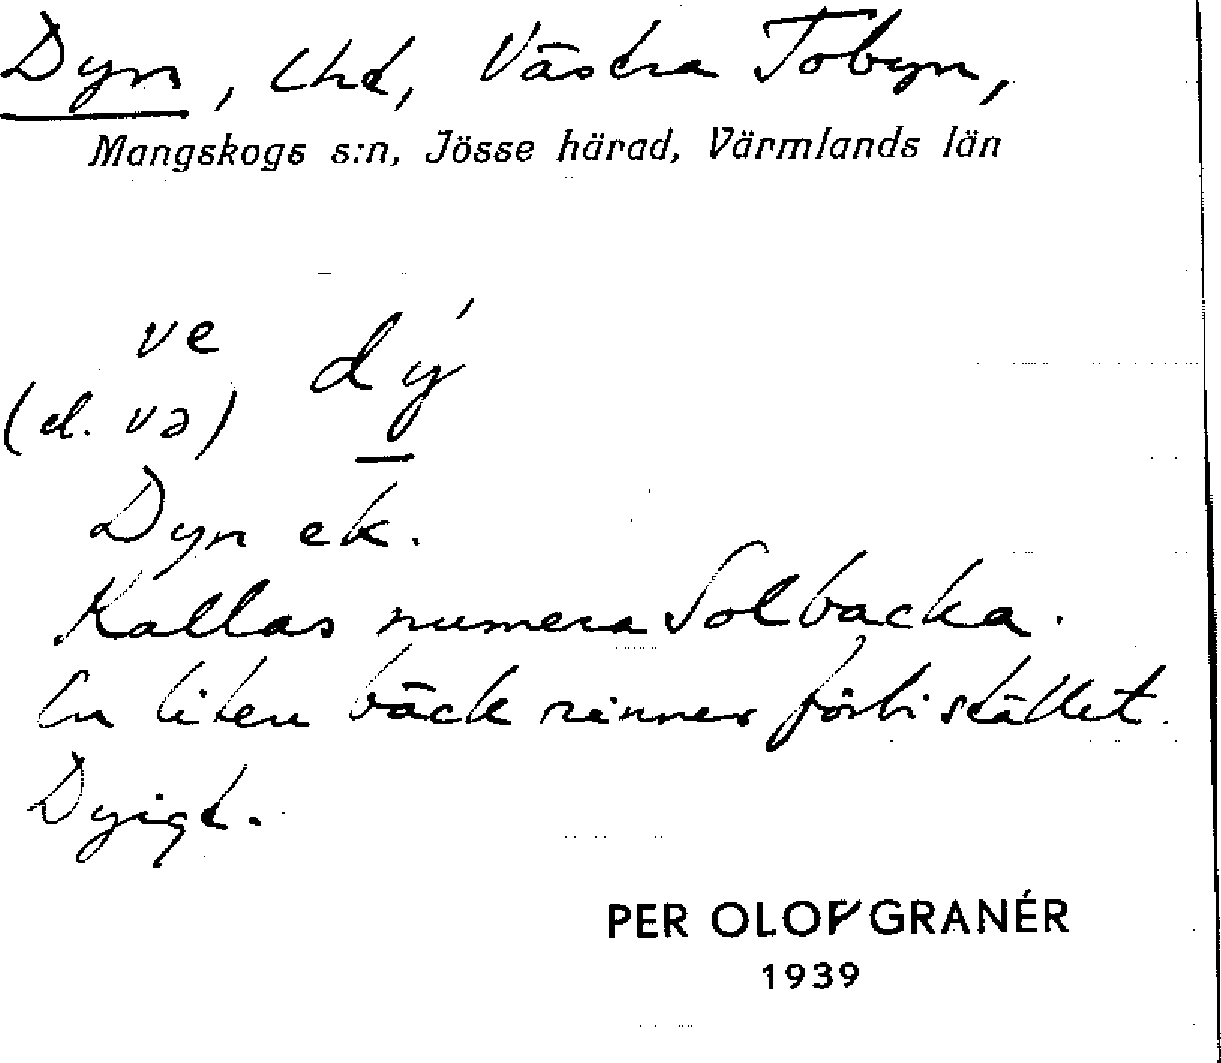 Dyn, lht, Västra Tobyn,
Mangskogs s:n, Jösse härad, Värmlands län
ve dý
(el. və)
Dyn ek.
Kallas numera Solbacka.
En liten bäck rinner förbi stället.
Dyigt.
PER OLOF GRANÉR
1939